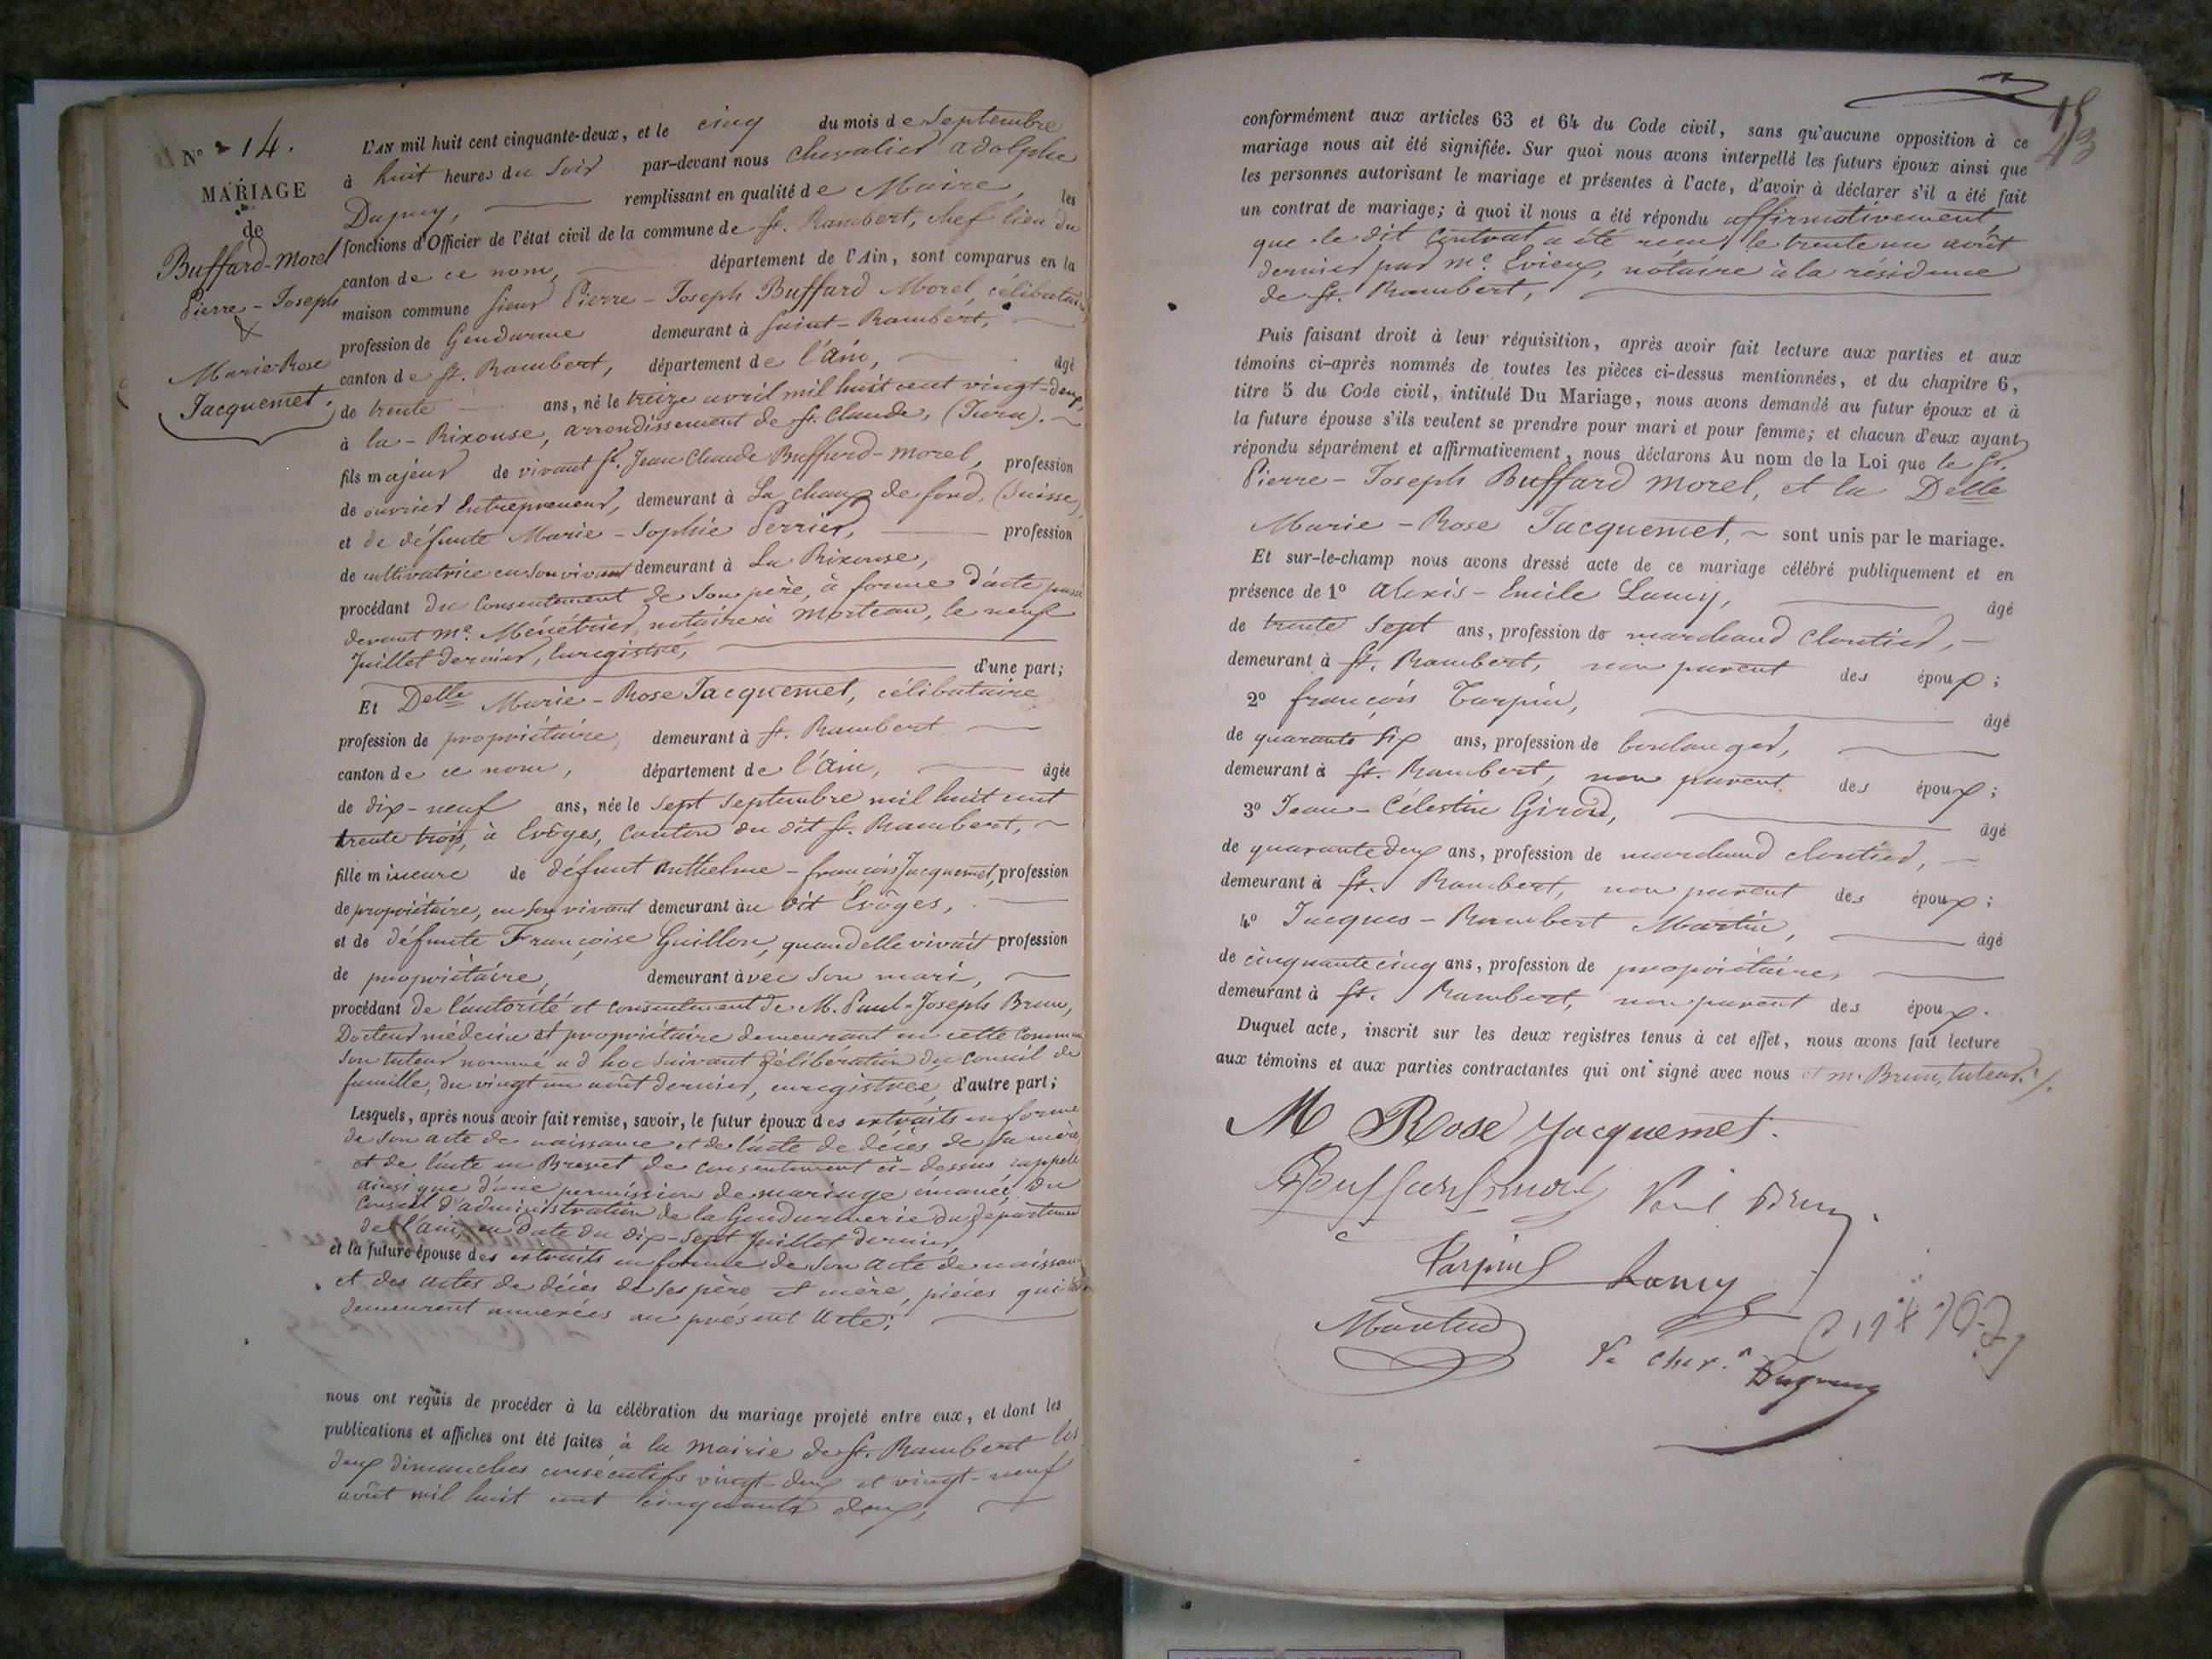 N° 14.
MARIAGE
de
Buffard-Morel
Pierre-Joseph
&
Marie-Rose
Jacquemet.
L'AN mil huit cent cinquante-deux, et le cinq du mois de Septembre
à huit heures du Soir par-devant nous Chevalier Adolphe
Dupuy, remplissant en qualité de Maire, les
fonctions d'Officier de l'état civil de la commune de St. Rambert, chef lieu du
canton de ce nom, département de l'Ain, sont comparus en la
maison commune Sieur Pierre-Joseph Buffard Morel, célibataire
profession de Gendarme demeurant à Saint-Rambert,
canton de St. Rambert, département de l'Ain, âgé
de trente ans, né le treize avril mil huit cent vingt-deux,
à la-Rixouse, arrondissement de St. Claude, (Jura).
fils majeur de vivant Sr. Jean Claude Buffard-Morel, profession
de ouvrier Entrepreneur, demeurant à La chaux de fond, (Suisse)
et de défunte Marie-Sophie Perrier, profession
de cultivatrice en son vivant demeurant à La Rixouse,
procédant du Consentement de Son père, à forme d'acte passé
devant Me. Ménétrier, notaire à Morteau, le neuf
Juillet dernier, Enregistré,
d'une part;
Et Delle Marie-Rose Jacquemet, célibataire
profession de propriétaire, demeurant à St. Rambert
canton de ce nom, département de l'Ain, âgée
de dix-neuf ans, née le Sept Septembre mil huit cent
trente trois, à Evôges, Canton du dit St. Rambert,
fille mineure de défunt Anthelme-françois Jacquemet, profession
de propriétaire, en son vivant demeurant au dit Evôges,
et de défunte Françoise Guillon, quand elle vivait profession
de propriétaire, demeurant avec Son mari,
procédant de l'autorité et consentement de M. Paul-Joseph Brun,
Docteur médecin et propriétaire demeurant en cette Commune
Son tuteur nommé ad hoc suivant délibération du Conseil de
famille, du vingt un août dernier, enregistrée, d'autre part;
Lesquels, après nous avoir fait remise, savoir, le futur époux des extraits en forme
de Son acte de naissance et de l'acte de décès de Sa mère,
et de l'acte en Brevet de consentement ci-dessus rappelé
ainsi que d'une permission de mariage émanée du
Conseil d'administration de la Gendarmerie du département
de l'ain, en date du dix-Sept Juillet dernier,
et la future épouse des extraits en forme de Son acte de naissance
et des actes de décès de Ses père et mère, pièces qui
demeurent annexées au présent Acte;
nous ont requis de procéder à la célébration du mariage projeté entre eux, et dont les
publications et affiches ont été faites à la Mairie de St. Rambert les
deux dimanches consécutifs vingt-deux et vingt-neuf
août mil huit cent cinquante deux,
conformément aux articles 63 et 64 du Code civil, sans qu'aucune opposition à ce
mariage nous ait été signifiée. Sur quoi nous avons interpellé les futurs époux ainsi que
les personnes autorisant le mariage et présentes à l'acte, d'avoir à déclarer s'il a été fait
un contrat de mariage; à quoi il nous a été répondu affirmativement,
que le dit Contrat a été reçu le trente un août
dernier par Me. Evieux, notaire à la résidence
de St. Rambert,
Puis faisant droit à leur réquisition, après avoir fait lecture aux parties et aux
témoins ci-après nommés de toutes les pièces ci-dessus mentionnées, et du chapitre 6,
titre 5 du Code civil, intitulé Du Mariage, nous avons demandé au futur époux et à
la future épouse s'ils veulent se prendre pour mari et pour femme; et chacun d'eux ayant
répondu séparément et affirmativement, nous déclarons Au nom de la Loi que le Sr.
Pierre-Joseph Buffard Morel, et la Delle
Marie-Rose Jacquemet, sont unis par le mariage.
Et sur-le-champ nous avons dressé acte de ce mariage célébré publiquement et en
présence de 1° Alexis-Emile Lamy, âgé
de trente Sept ans, profession de marchand Cloutier,
demeurant à St. Rambert, non parent des époux;
2° françois Tarpin, âgé
de quarante Six ans, profession de boulanger,
demeurant à St. Rambert, non parent des époux;
3° Jean-Célestin Girod, âgé
de quarante deux ans, profession de marchand cloutier,
demeurant à St. Rambert, non parent des époux;
4° Jacques-Rambert Martin, âgé
de cinquante cinq ans, profession de propriétaire,
demeurant à St. Rambert, non parent des époux.
Duquel acte, inscrit sur les deux registres tenus à cet effet, nous avons fait lecture
aux témoins et aux parties contractantes qui ont signé avec nous et M. Brun, tuteur./.
M Rose Jacquemet.
Buffard morel Paul Brun
Tarpin Lamy
Martin
Dupuy